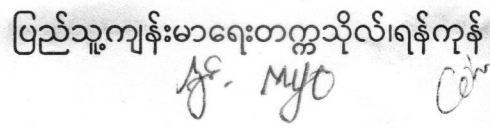 ပြည်သူ့ကျန်းမာရေးတက္ကသိုလ်၊ရန်ကုန်
Myo